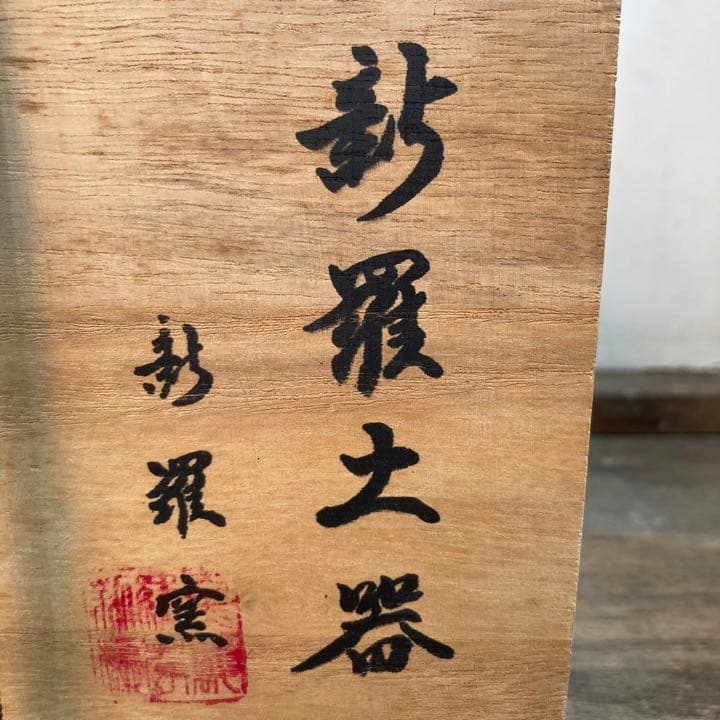 新羅土器
新羅窯